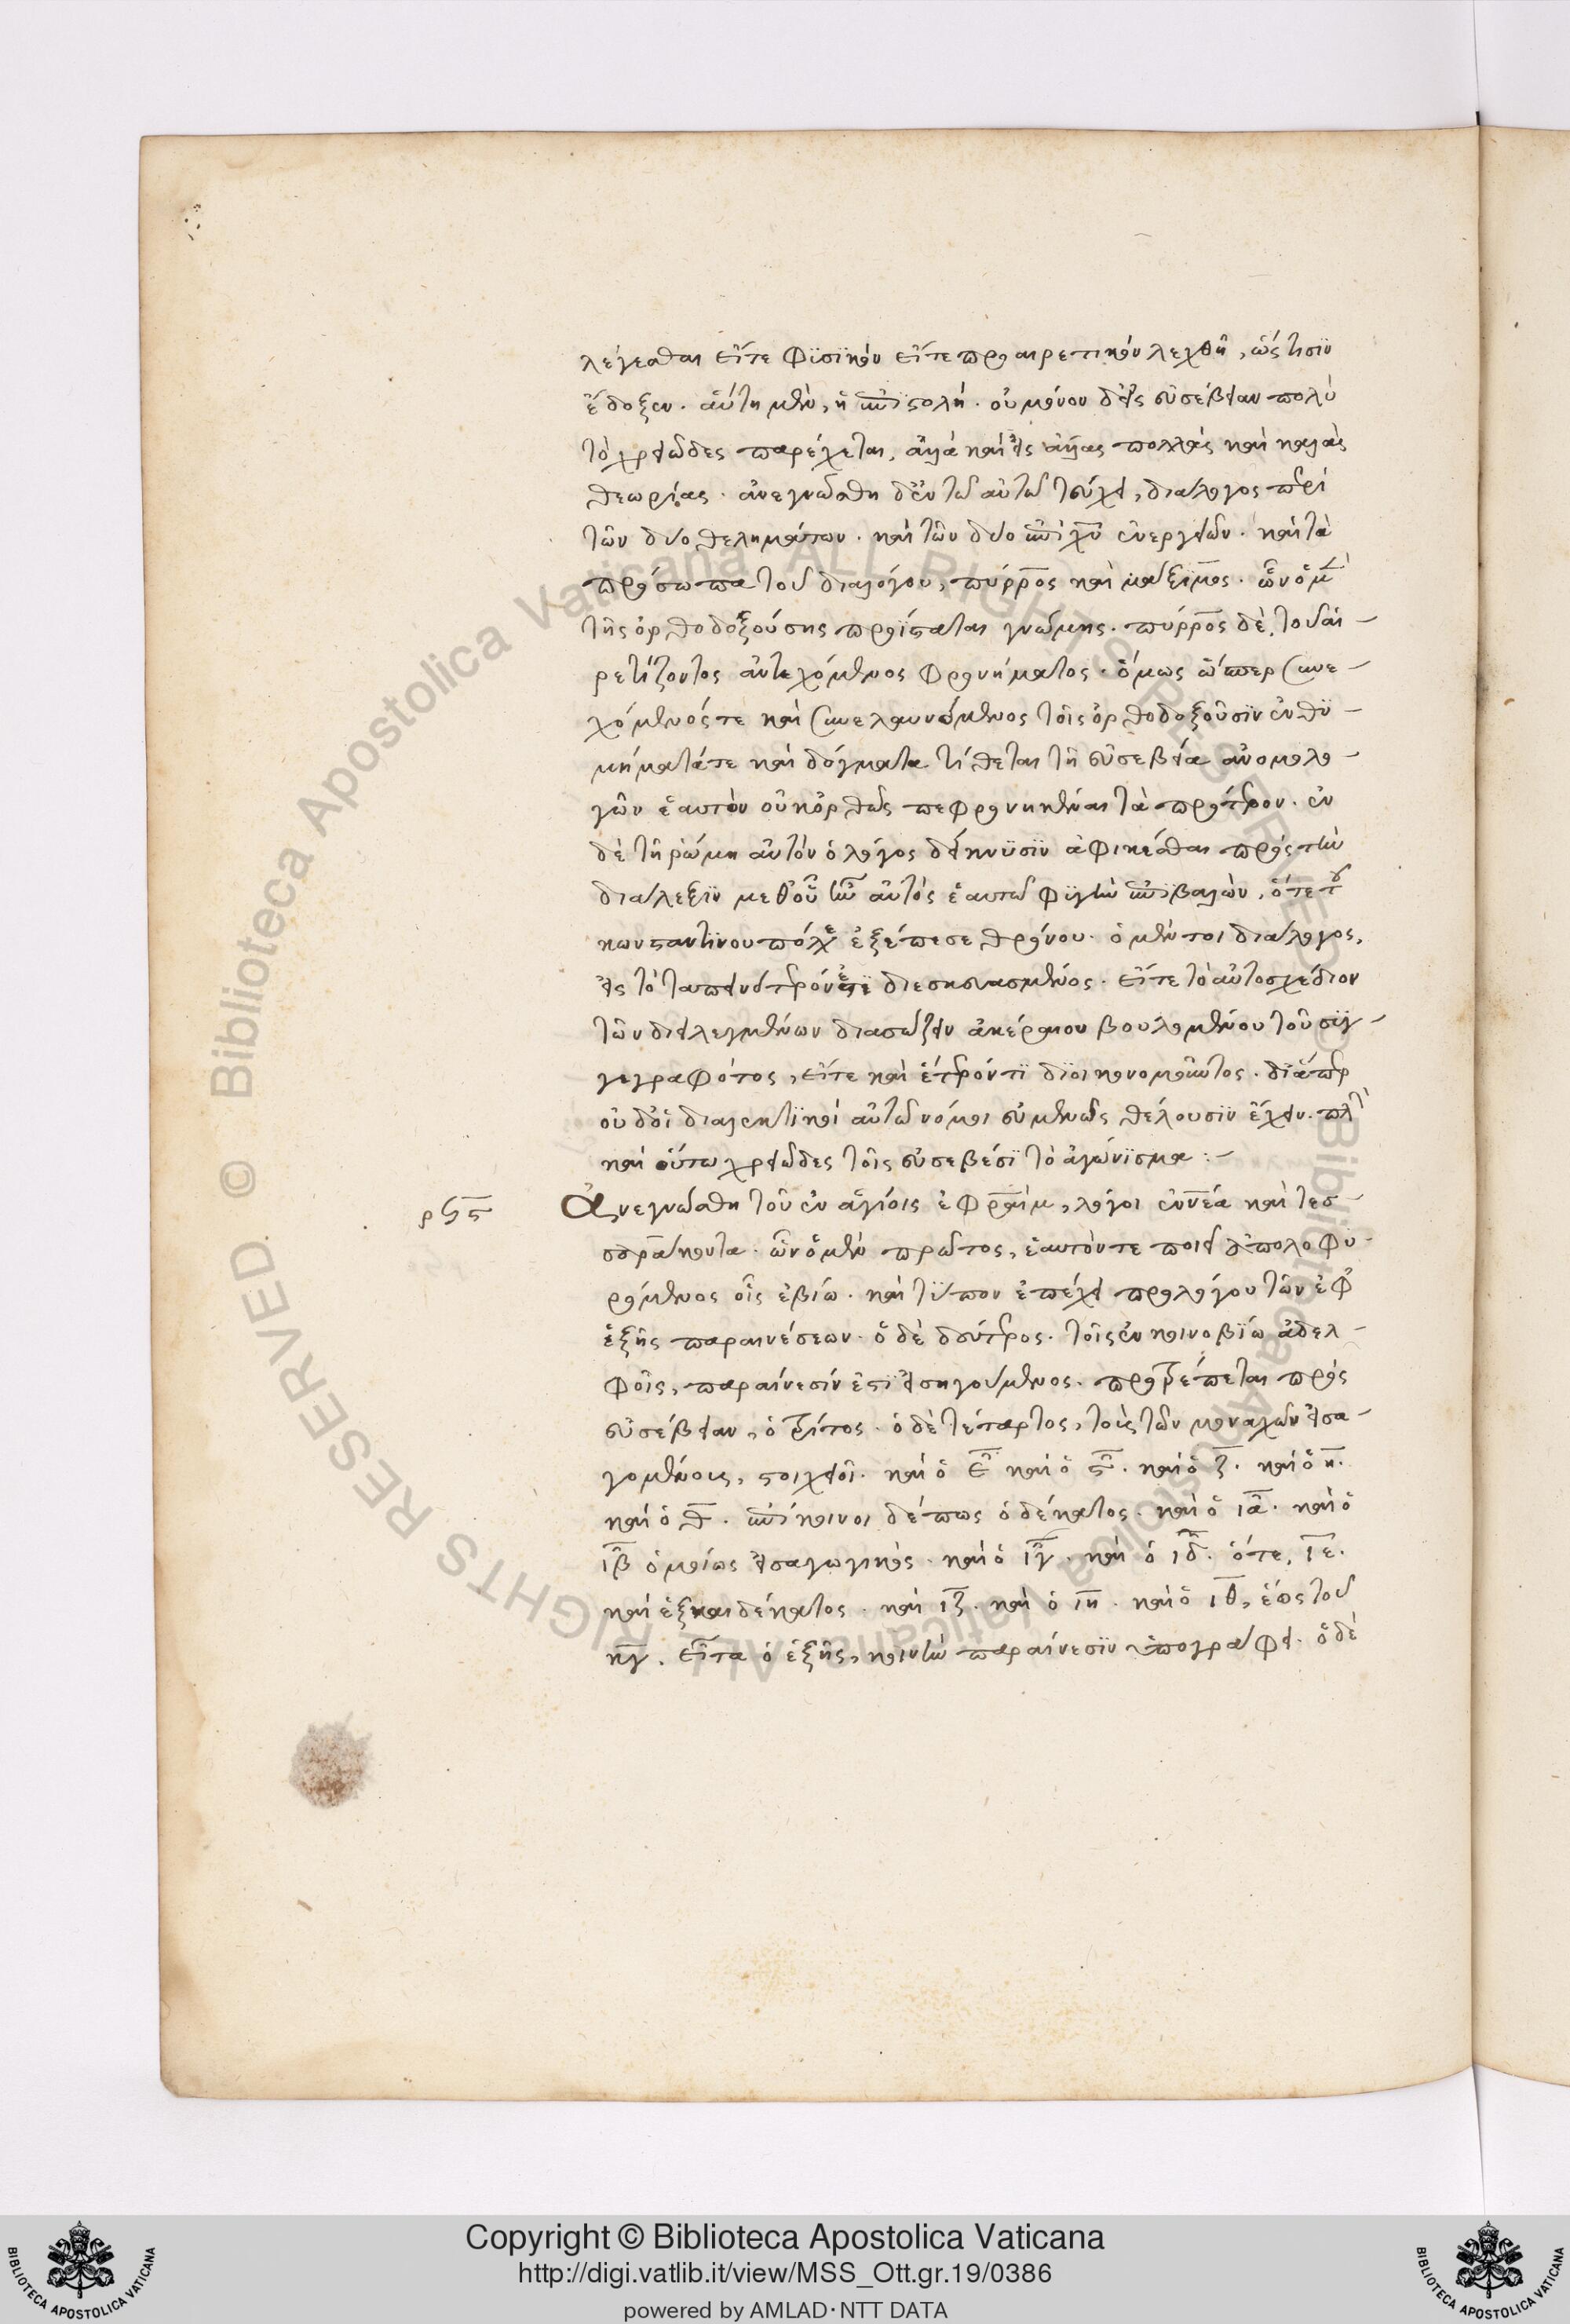 λέγεσθαι εἴτε φϋσϊκὸν εἴτε προαιρετικὸν λεχθῆ, ὥς τισϊν
ἔδοξεν. αὕτη μὲν, ἡ ἐπϊστολή. οὐ μόνον δ' εἰς εὐσέβειαν πολὺ
τὸ χρειῶδες παρέχεται, ἀλλὰ καὶ εἰς ἄλλας πολλὰς καὶ καλὰς
θεωρίας. ἀνεγνώσθη δ' ἐν τῶ αὐτῶ τεύχει, διάλογος περὶ
τῶν δύο θελημάτων. καὶ τῶν δύο ἐπὶ χ̅υ̅ ἐνεργειῶν. καὶ τὰ
πρόσωπα τοῦ διαλόγου, πύρρος καὶ μάξϊμος. ὧν ὁ μ̅
τῆς ὀρθοδοξούσης προΐσταται γνώμης. πύρρος δὲ, τοῦ αἱ-
ρετίζοντος ἀντεχόμενος φρονήματος. ὅμως ὥσπερ συνε-
χόμενός τε καὶ συνελαυνόμενος τοῖς ὀρθοδοξοῦσϊν ἐνθϋ-
μήματά τε καὶ δόγματα τίθεται τῆ εὐσεβεία ἀνομολο-
γῶν ἑαυτὸν οὐκ ὀρθῶς πεφρονηκέναι τὰ πρότερον. ἐν
δὲ τῆ ῥώμη αὐτὸν ὁ λόγος δείκνυσϊν ἀφικέσθαι πρὸς τὴν
διάλεξϊν μεθ' οὗ τὴν αὐτὸς ἑαυτῶ φϋγὴν ἐπϊβαλὼν, ὅτε τοῦ
κωνσταντϊνουπόλεως ἐξέπεσε θρόνου. ὁ μέν τοι διάλογος,
εἰς τὸ ταπεινότερόν ἐστϊ διεσκευασμένος. εἴτε τὸ αὐτοσχέδιον
τῶν διειλεγμένων διασώζειν ἀκέραιον βουλομένου τοῦ σϋγ-
γεγραφότος, εἴτε καὶ ἕτερόν τϊ διοικονομοῦντος. διόπερ
οὐδ' οἱ διαλεκτϊκοὶ αὐτῶ νόμοι εὐμενῶς θέλουσϊν ἔχειν. πλὴν
καὶ οὕτω χρειῶδες τοῖς εὐσεβέσϊ τὸ ἀγώνϊσμα:-
ρϟϛ
Ἀνεγνώσθη τοῦ ἐν ἁγίοις ἐφραὶμ, λόγοι ἐννέα καὶ τεσ-
σαράκοντα. ὧν ὁ μὲν πρῶτος, ἑαυτόν τε ποιεῖ ἀπολοφυ-
ρόμενος οἷς ἐβίω. καὶ τύπον ἐπέχει προλόγου τῶν ἐφ'
ἑξῆς παραινέσεων. ὁ δὲ δεύτερος. τοῖς ἐν κοινοβϊω ἀδελ-
φοῖς, παραίνεσίν ἐστϊ εἰσηγούμενος. προτρέπεται πρὸς
εὐσέβειαν, ὁ τρίτος. ὁ δὲ τέταρτος, τοὺς τῶν μοναχῶν εἰσα-
γομένους, στοιχειοῖ. καὶ ὁ ε̅ καὶ ὁ ϛ̅. καὶ ὁ ζ̅. καὶ ὁ η̅.
καὶ ὁ θ̅. ἐπίκοινοι δέ πως ὁ δέκατος. καὶ ὁ ι̅α̅. καὶ ὁ
ι̅β̅ ὁμοίως εἰσαγωγικός. καὶ ὁ ι̅γ̅. καὶ ὁ ι̅δ̅. ὅτε, ι̅ε̅.
καὶ ἑξκαιδέκατος. καὶ ι̅ζ̅. καὶ ὁ ι̅η̅. καὶ ὁ ι̅θ̅, ἕως τοῦ
κ̅γ̅. εἶτα ὁ ἑξῆς, κοινὴν παραίνεσϊν ὑπογράφει. ὁ δὲ
Copyright © Biblioteca Apostolica Vaticana
http://digi.vatlib.it/view/MSS_Ott.gr.19/0386
powered by AMLAD·NTT DATA